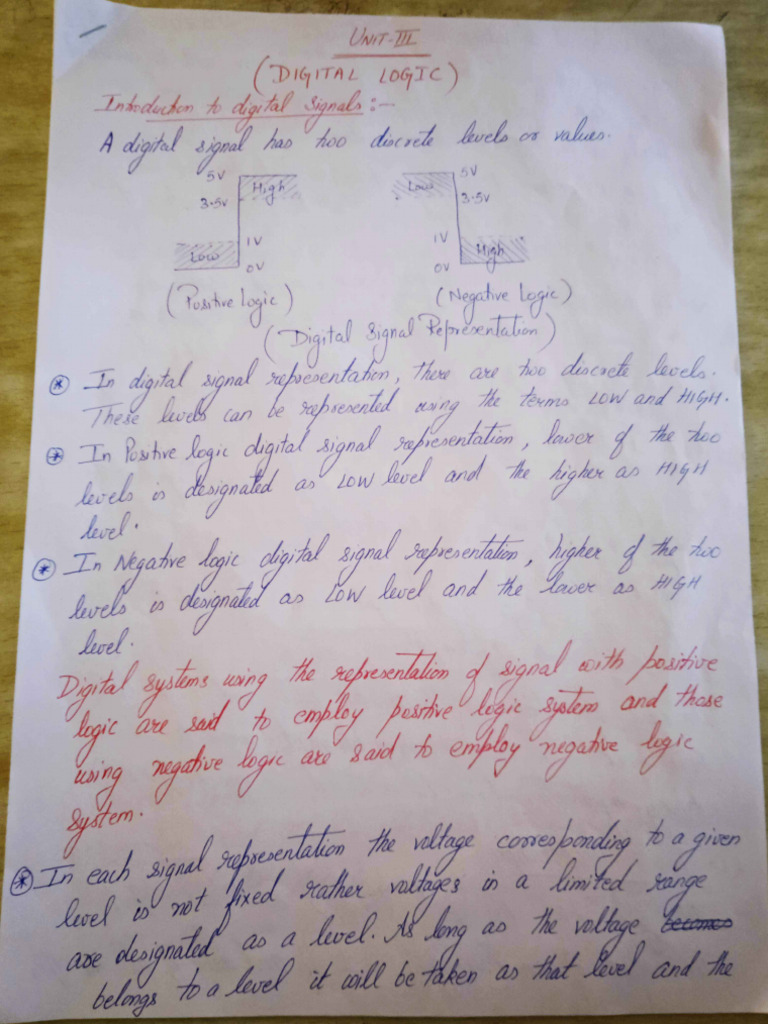 UNIT-III
(DIGITAL LOGIC)
Introduction to digital signals :-
A digital signal has two discrete levels or values.
5V High Low 5V
3.5V 3.5V
Low 1V 1V High
0V 0V
(Positive Logic) (Negative Logic)
(Digital Signal Representation)
* In digital signal representation, there are two discrete levels.
These levels can be represented using the terms LOW and HIGH.
* In Positive logic digital signal representation, lower of the two
levels is designated as LOW level and the higher as HIGH
level.
* In Negative logic digital signal representation, higher of the two
levels is designated as LOW level and the lower as HIGH
level.
Digital systems using the representation of signal with positive
logic are said to employ positive logic system and those
using negative logic are said to employ negative logic
system.
* In each signal representation the voltage corresponding to a given
level is not fixed rather voltages in a limited range
are designated as a level. As long as the voltage becomes
belongs to a level it will be taken as that level and the